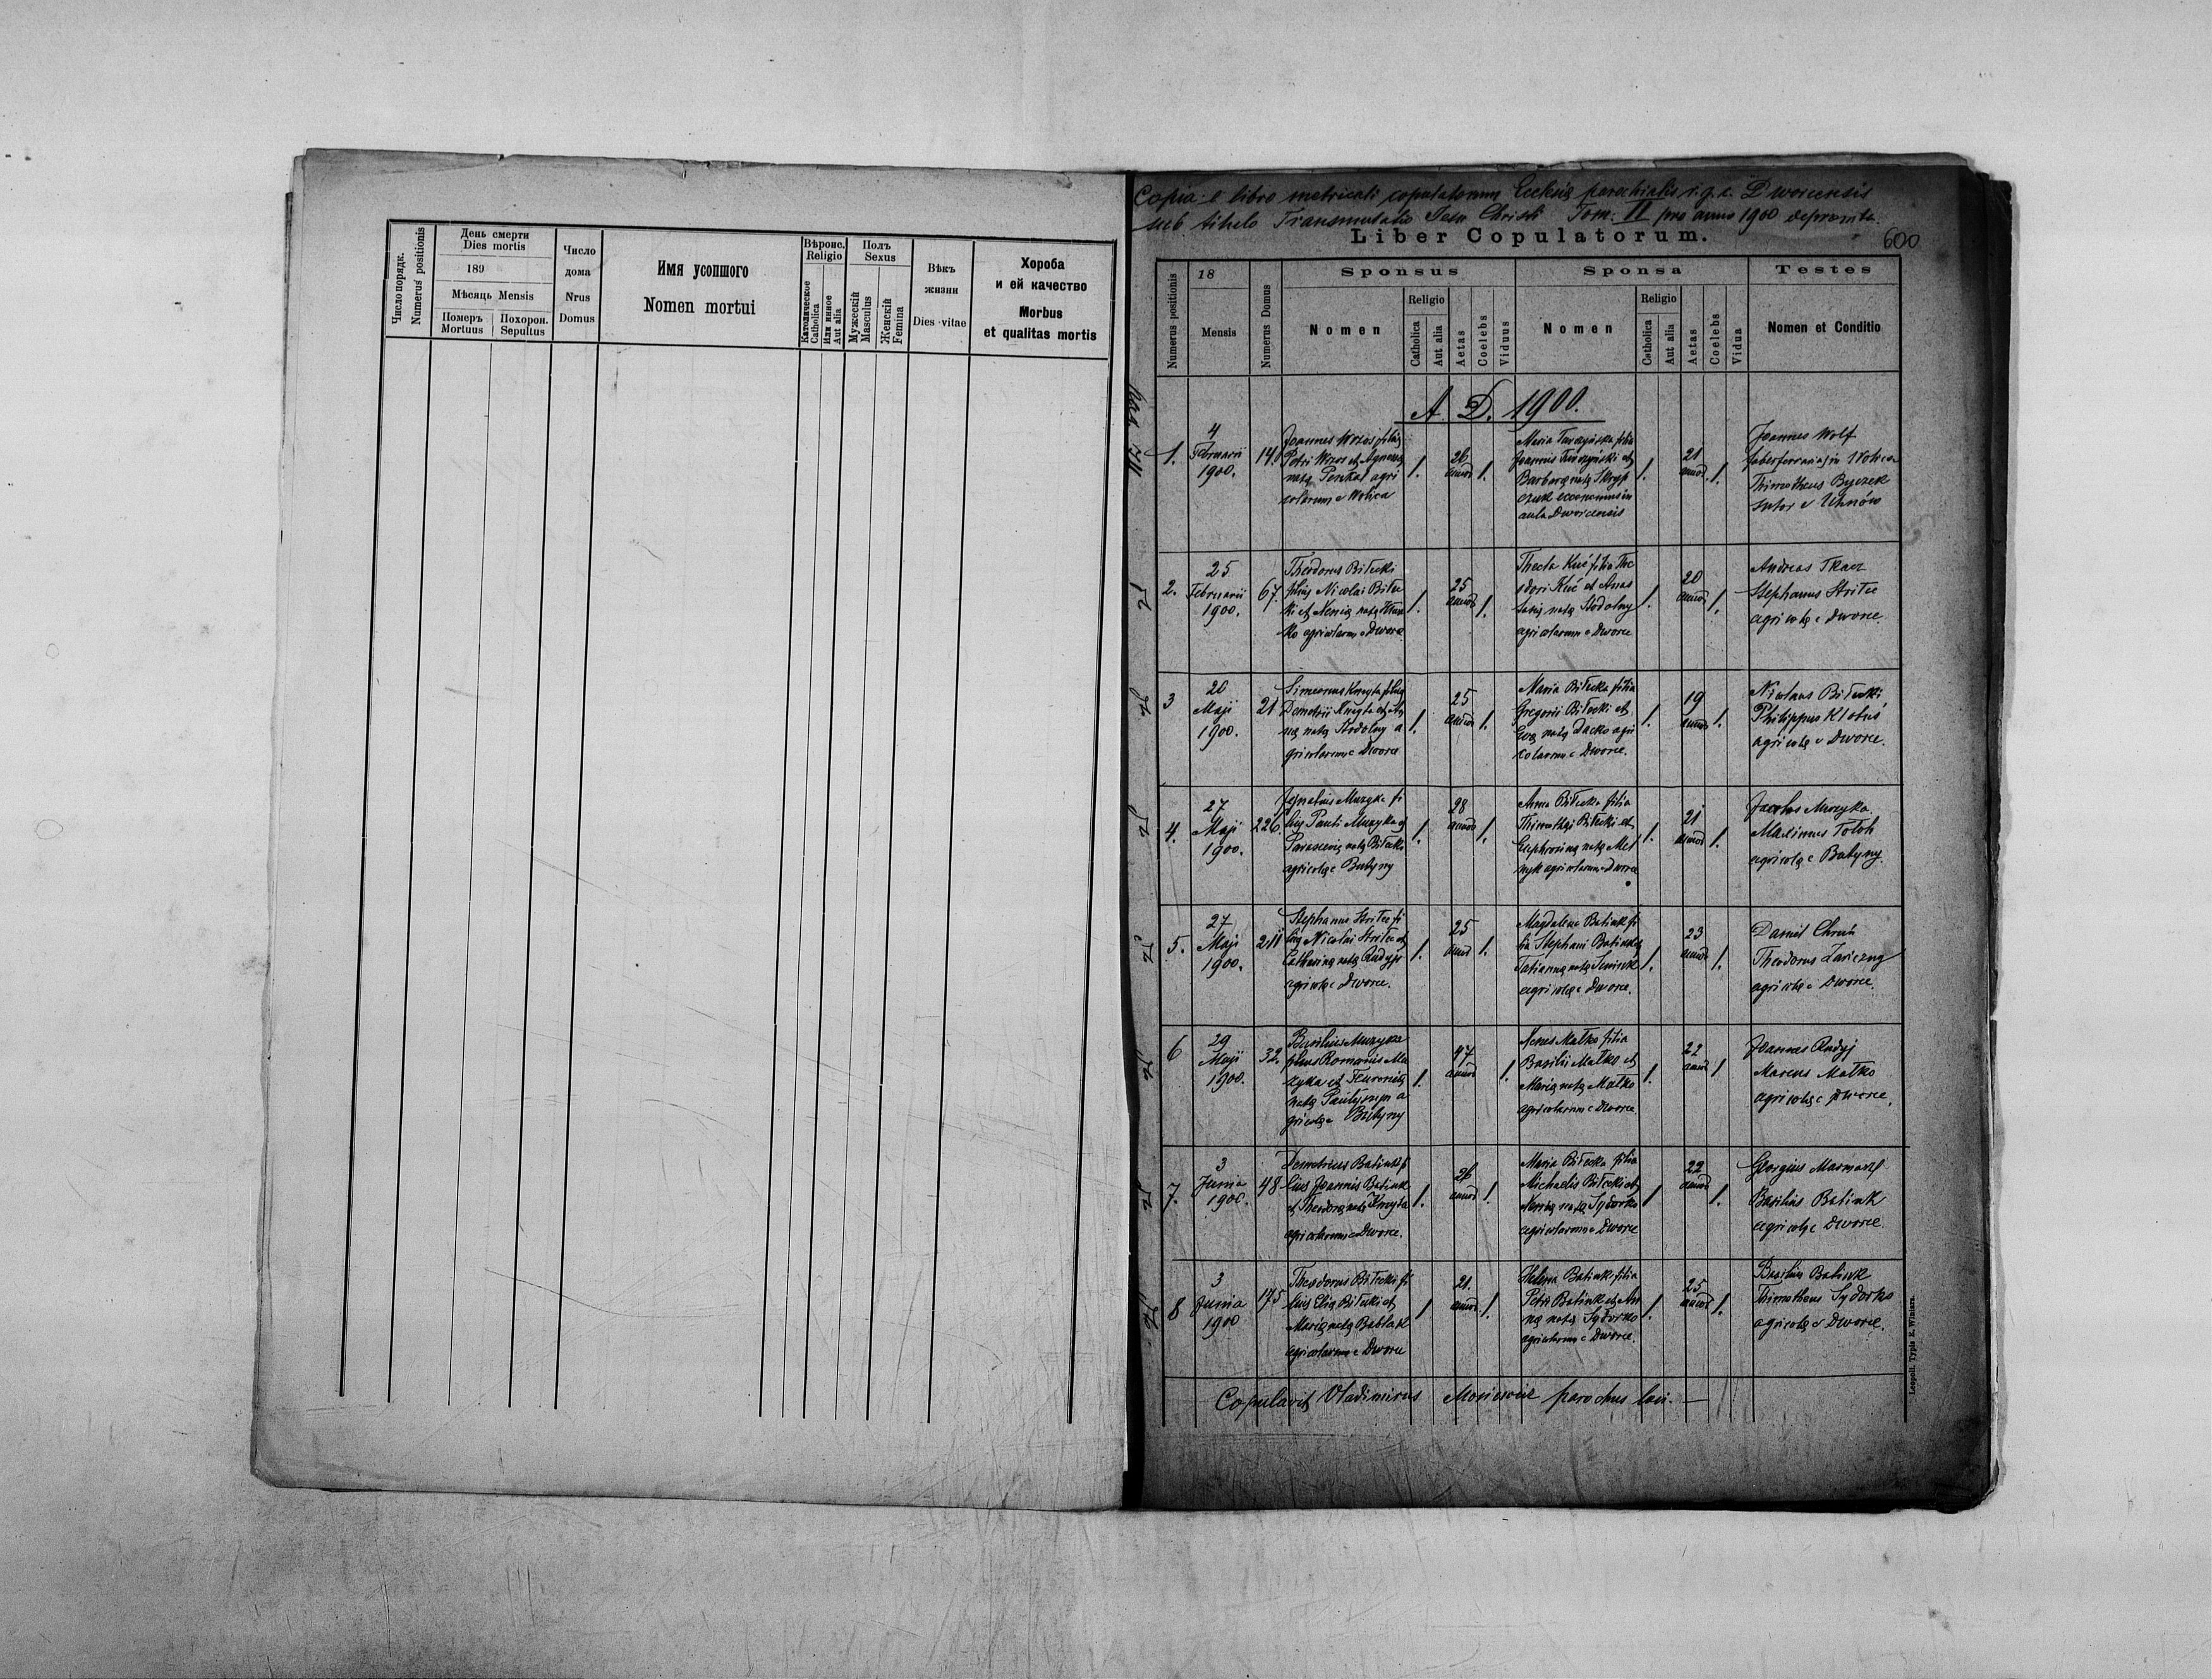 Число порядк.
Numerus positionis
День смерти
Dies mortis
189
Мѣсяць Mensis
Померъ
Mortuus
Похорон.
Sepultus
Число
дома
Nrus
Domus
Имя усопшого
Nomen mortui
Вѣроис.
Religio
Католическое
Catholica
Или инное
Aut alia
Полъ
Sexus
Мужескій
Masculus
Женскій
Femina
Вѣкъ
жизни
Dies vitae
Хороба
и ей качество
Morbus
et qualitas mortis
Copia e libro metricali copulatorum Ecclesię parochialis r. g. c. Dworcensis
sub titulo Transmutatio Jesu Christi Tom. II pro anno 1900 deprompta.
Liber Copulatorum.
600
Numerus positionis
18
Mensis
Numerus Domus
Sponsus
Nomen
Religio
Catholica
Aut alia
Aetas
Coelebs
Viduus
Sponsa
Nomen
Religio
Catholica
Aut alia
Aetas
Coelebs
Vidua
Testes
Nomen et Conditio
A. D. 1900.
1.
4
Februarii
1900.
14.
Joannes Wrzos filius
Petri Wrzos et Agnes
natę agri
colarum e Wolica
1.
26
annor
1.
Maria filia
Joannis et
Barbarę natę Skryp
czuk economus in
aula Dworcensis
1.
21
annor
1.
Joannes Wolf
faber ferrarius in Wolica
Thimotheus Byczek
sutor e Uhnów
2.
25
Februarii
1900.
67.
Theodorus Biłecki
filius Nicolai Biłec
ki et Xenię natę
ko agricolarum e Dworce
1.
25
annor
1.
Thecla Kuć filia The
odori Kuć et Anas
tasię natę Stodolny
agricolarum e Dworce
1.
20
annor
1.
Andreas Tkacz
Stephanus Striłec
agricolę e Dworce.
3
20
Maji
1900.
21
Simeonus Kmyta filius
Demetrii Kmyta et An
nę natę Stodolny a
gricolarum e Dworce
1.
25
annor
1.
Maria Biłecka filia
Gregorii Biłecki et
Evę natę Dacko agri
colarum e Dworce.
1.
19
annor
1.
Nicolaus Biłecki
Philippus
agricolę e Dworce.
4.
27
Maji
1900.
226
Ignatius Muzyka fi
lius Pauli Muzyka et
Parascevię natę Biłecka
agricolę e Butyny
1.
28
annor
1.
Anna Biłecka filia
Thimothęi Biłecki et
Euphrosinę natę Mel
nyk agricolarum e Dworce
1.
21
annor
1.
Jacobus Muzyka
Maximus Tołoh
agricolę e Butyny.
5.
27
Maji
1900.
211
Stephanus Striłec fi
lius Nicolai Striłec et
Catharinę natę Rudyj
agricolę e Dworce.
1.
25
annor
1.
Magdalena Batiuk fi
lia Stephani Batiuk et
Tatiannę natę
agricolę e Dworce.
1.
23
annor
1.
Daniel
Theodorus
agricolę e Dworce.
6
29
Maji
1900.
32.
Basilius Muzyka
filius Romanis Mu
zyka et Feuronię
natę a
gricolę e Butyny
1.
47
annor
1.
Agnes Matko filia
Basilii Matko et
Marię natę Matko
agricolarum e Dworce
1.
22
annor
1
Joannes Rudyj
Marcus Matko
agricolę e Dworce.
7.
3
Junia
1900.
48
Demetrius Batiuk fi
lius Joannis Batiuk
et Theodorę natę Kmyta
agricolarum e Dworce.
1.
annor
1.
Maria Biłecka filia
Michaelis Biłecki et
Xenię natę Sydorko
agricolarum e Dworce
1
22
annor
1.
Georgius
Basilius Batiuk
agricolę e Dworce.
8
3
Junia
1900
175
Theodorus Biłecki fi
lius Elię Biłecki et
Marię natę Bablak
agricolarum e Dworce
1
21.
annor
1.
Helena Batiuk filia
Petri Batiuk et An
nę natę Sydorko
agricolarum e Dworce.
1.
25
annor
1.
Basilius Batiuk
Thimotheus Sydorko
agricolę e Dworce.
Copulavit Vladimirus parochus loci. —
Leopoli. Typis E. Winiarz.